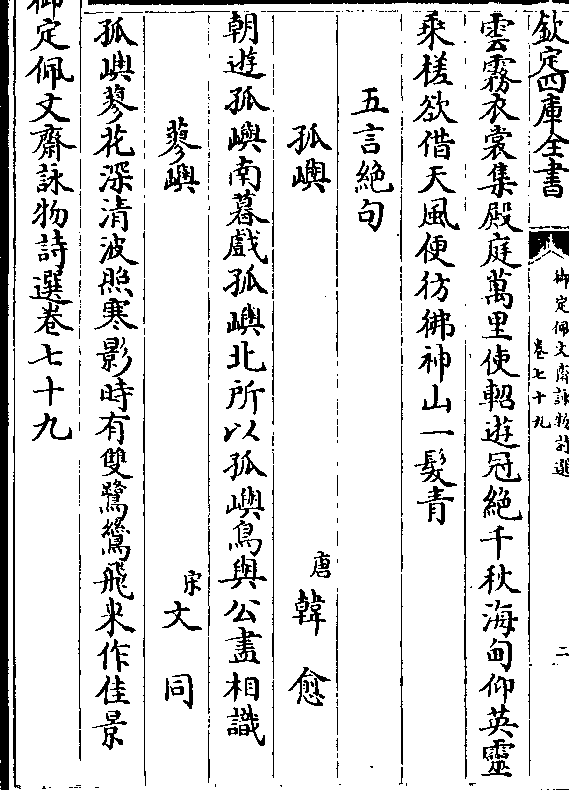 欽定四庫全書
御定佩文齋詠物詩選
卷七十九
二
雲霧衣裳集殿庭萬里使軺遊冠絕千秋海甸仰英靈
乘槎欲借天風便彷彿神山一髮青
五言絕句
孤嶼
唐韓愈
朝遊孤嶼南暮戲孤嶼北所以孤嶼鳥與公盡相識
蓼嶼
宋文同
孤嶼蓼花深清波照寒影時有雙鷺鷥飛來作佳景
御定佩文齋詠物詩選卷七十九